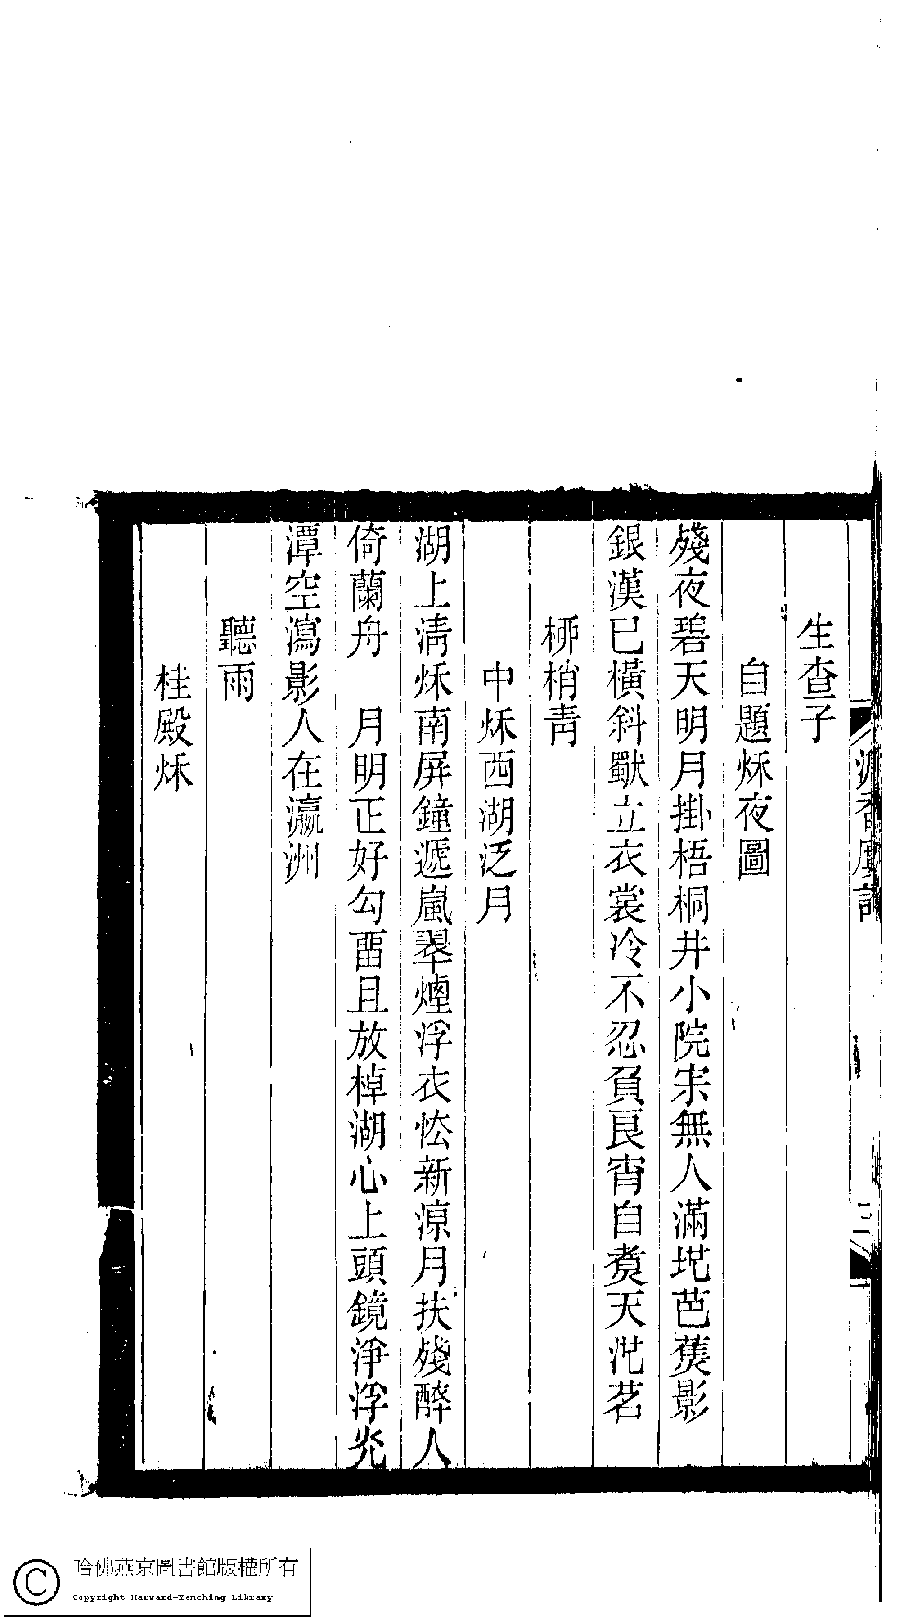 生查子
自題秌夜圖
殘夜碧天明月掛梧桐井小院宋無人滿地芭蕉影
銀漢已橫斜獨立衣裳冷不忍負良宵自煑天池茗
栁梢青
中秌西湖泛月
湖上清秌南屏鐘遞嵐翠煙浮衣怯新涼月扶殘醉人
倚蘭舟　月明正好勾畱且放棹湖心上頭鏡淨浮光
潭空瀉影人在瀛洲
聽雨
桂殿秌
三
哈佛燕京圖書館版權所有
Copyright Harvard-Yenching Library